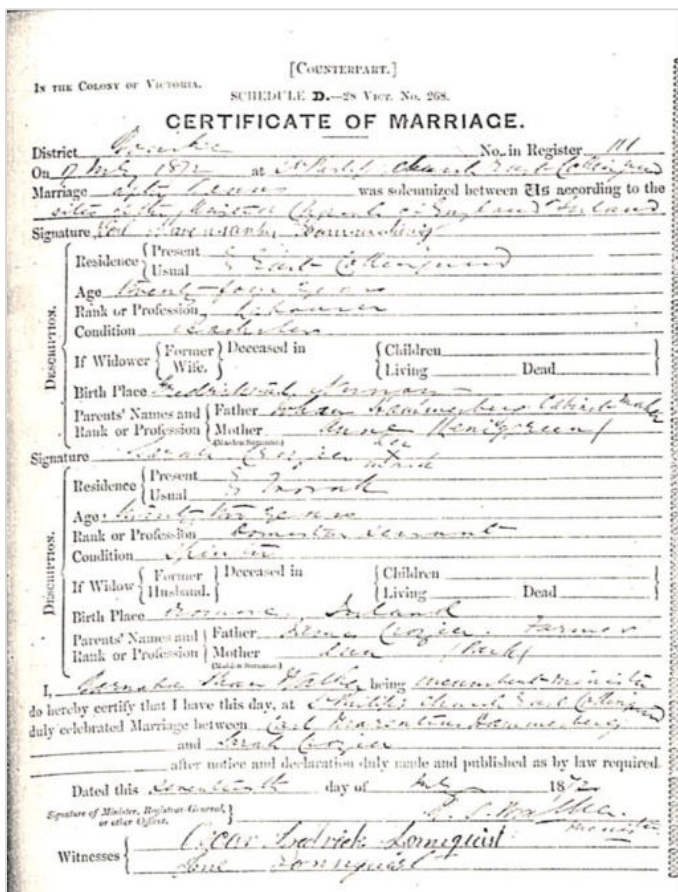 [COUNTERPART.]
IN THE COLONY OF VICTORIA.
SCHEDULE D.—28 VICT. No. 268.
CERTIFICATE OF MARRIAGE.
District No. in Register 101
On 17 July 1872 at St Philip's Church East Collingwood
Marriage after Banns was solemnized between Us according to the
rites of the United Church of England & Ireland
Signature Carl
Residence { Present
Usual } East Collingwood
Age Twenty four years
Rank or Profession Labourer
Condition Bachelor
If Widower { Former Wife. } Deceased in { Children
Living Dead
Birth Place
Parents' Names and Rank or Profession { Father Johan Hammerberg Cabinet maker
Mother Anne
(Maiden Surname.)
Signature Sarah Crozier her x mark
Residence { Present
Usual } Toorak
Age Twenty years
Rank or Profession Domestic Servant
Condition Spinster
If Widow { Former Husband. } Deceased in { Children
Living Dead
Birth Place Ireland
Parents' Names and Rank or Profession { Father Crozier Farmer
Mother
(Maiden Surname.)
I, Walker being incumbent minister
do hereby certify that I have this day, at St Philip's Church East Collingwood
duly celebrated Marriage between Carl Hammerberg
and Sarah Crozier
after notice and declaration duly made and published as by law required.
Dated this seventeenth day of July 1872
Signature of Minister, Registrar-General, or other Officer. } Walker
Minister
Witnesses { Oscar Fredrick Lornequist
Lornequist